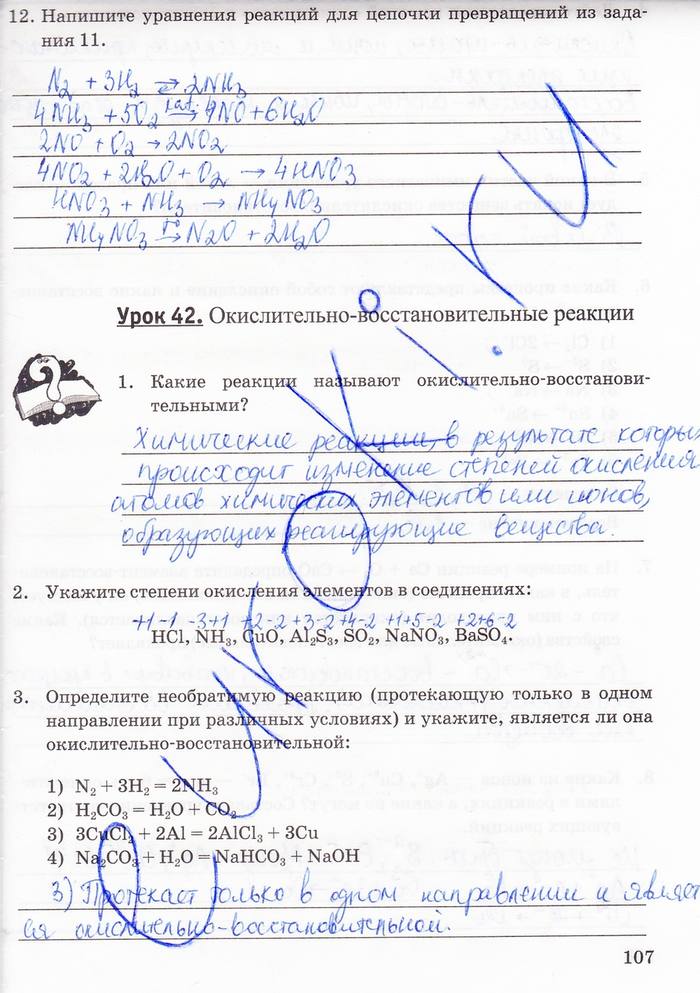 12. Напишите уравнения реакций для цепочки превращений из зада-
ния 11.
N2 + 3H2 ⇄ 2NH3
4NH3 + 5O2 —кат.→ 4NO + 6H2O
2NO + O2 → 2NO2
4NO2 + 2H2O + O2 → 4HNO3
HNO3 + NH3 → NH4NO3
NH4NO3 —t°→ N2O + 2H2O
Урок 42. Окислительно-восстановительные реакции
1. Какие реакции называют окислительно-восстанови-
тельными?
Химические реакции, в результате которых
происходит изменение степеней окисления
атомов химических элементов или ионов,
образующих реагирующие вещества.
2. Укажите степени окисления элементов в соединениях:
+1 -1 -3 +1 +2 -2 +3 -2 +4 -2 +1 +5 -2 +2 +6 -2
HCl, NH3, CuO, Al2S3, SO2, NaNO3, BaSO4.
3. Определите необратимую реакцию (протекающую только в одном
направлении при различных условиях) и укажите, является ли она
окислительно-восстановительной:
1) N2 + 3H2 = 2NH3
2) H2CO3 = H2O + CO2
3) 3CuCl2 + 2Al = 2AlCl3 + 3Cu
4) Na2CO3 + H2O = NaHCO3 + NaOH
3) Протекает только в одном направлении и являет-
ся окислительно-восстановительной.
107